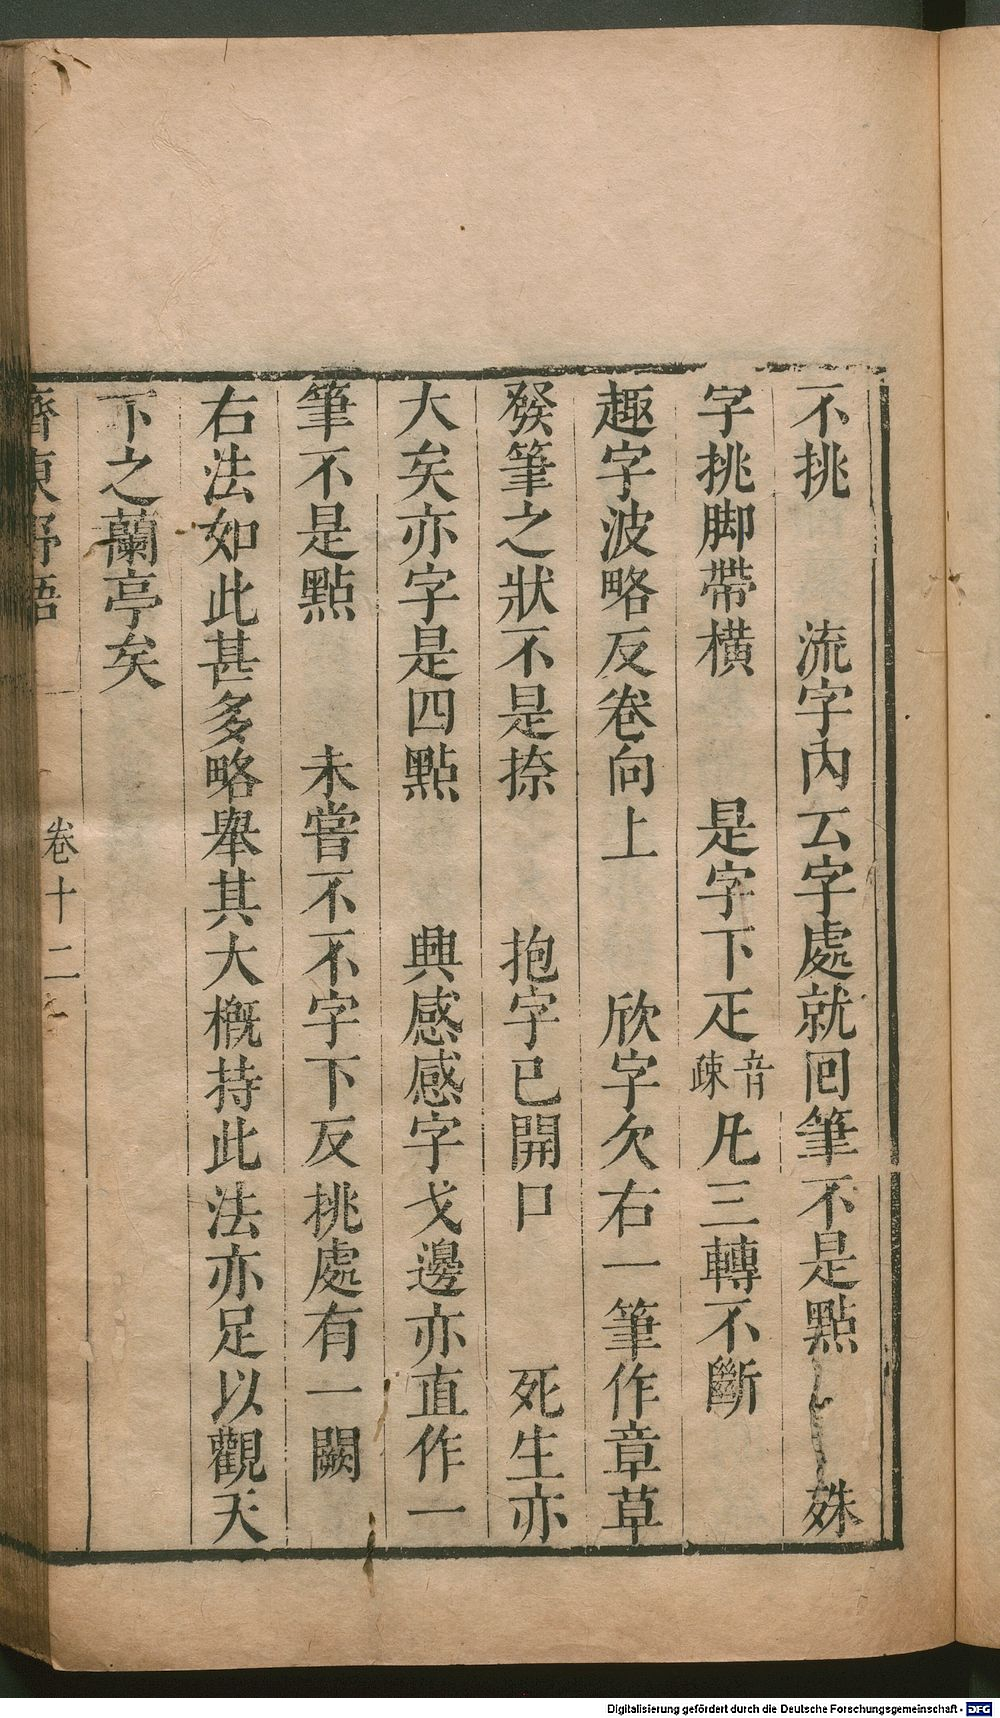 不挑　流字內云字處就回筆不是點　姝
字挑脚帶橫　是字下疋音疎凡三轉不斷
趣字波略反卷向上　欣字欠右一筆作章草
發筆之狀不是捺　抱字已開口　死生亦
大矣亦字是四點　興感感字戈邊亦直作一
筆不是點　未嘗不不字下反挑處有一闕
右法如此甚多略舉其大槪持此法亦足以觀天
下之蘭亭矣
齊東野語　卷十二
Digitalisierung gefördert durch die Deutsche Forschungsgemeinschaft - DFG